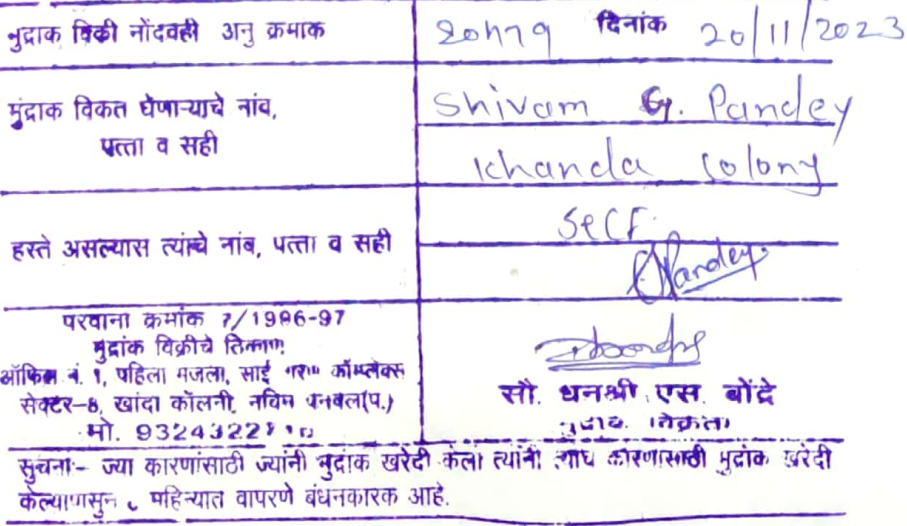 मुद्रांक विक्री नोंदवही अनु क्रमांक दिनांक 20/11/2023
मुंद्राक विकत घेणाऱ्याचे नांव, Shivam G. Pandey
पत्ता व सही Khanda Colony
हस्ते असल्यास त्यांचे नांव, पत्ता व सही Self
Pandey
परवाना क्रमांक 7/1996-97
मुद्रांक विक्रीचे ठिकाण
ऑफिस नं. 1, पहिला मजला, साई कॉम्प्लेक्स
सेक्टर-8, खांदा कॉलनी, नविन पनवेल(प.)
मो.
सौ. धनश्री एस. बोंद्रे
मुद्रांक विक्रेता
सुचना:- ज्या कारणांसाठी ज्यांनी मुद्रांक खरेदी केला त्यांनी त्याच कारणासाठी मुद्रांक खरेदी
केल्यापासुन महिन्यात वापरणे बंधनकारक आहे.